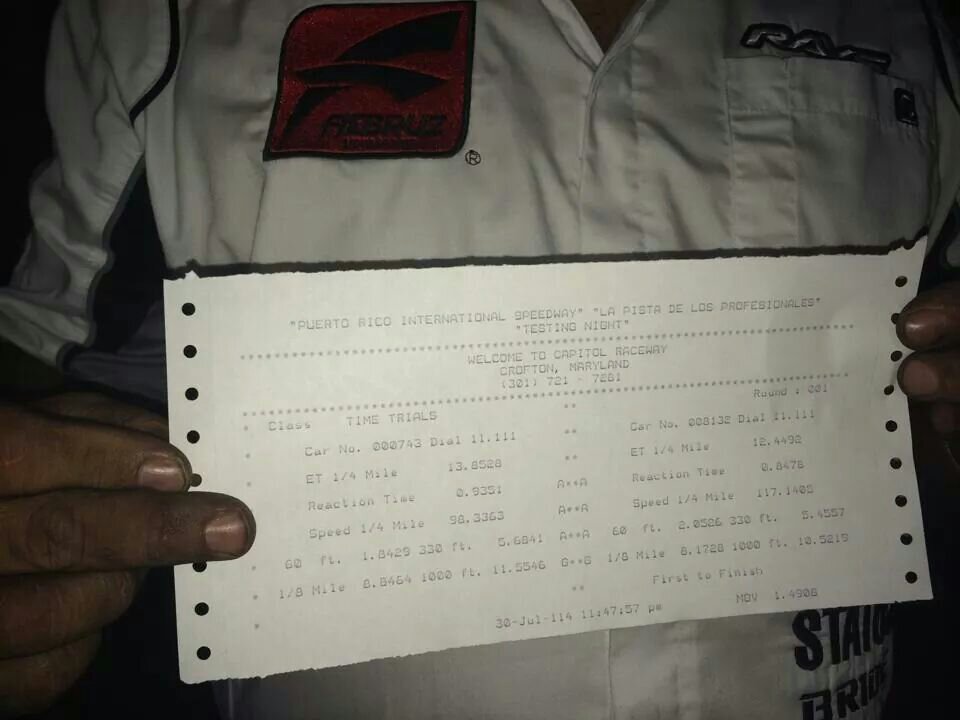 FEBRUZ
®
"PUERTO RICO INTERNATIONAL SPEEDWAY" "LA PISTA DE LOS PROFESIONALES"
"TESTING NIGHT"
WELCOME TO CAPITOL RACEWAY
CROFTON, MARYLAND
(301) 721 - 7281
Round : 001
* Class TIME TRIALS **
* Car No. 000743 Dial 11.111 ** Car No. 008132 Dial 11.111
* ET 1/4 Mile 13.8528 ** ET 1/4 Mile 12.4492
Reaction Time 0.9351 A**A Reaction Time 0.8478
Speed 1/4 Mile 98.3363 A**A Speed 1/4 Mile 117.1405
* 60 ft. 1.8429 330 ft. 5.6841 A**A 60 ft. 2.0526 330 ft. 5.4557
* 1/8 Mile 8.8464 1000 ft. 11.5546 G**G 1/8 Mile 8.1728 1000 ft. 10.5215
* ** First to Finish
30-Jul-114 11:47:57 pm MOV 1.4906